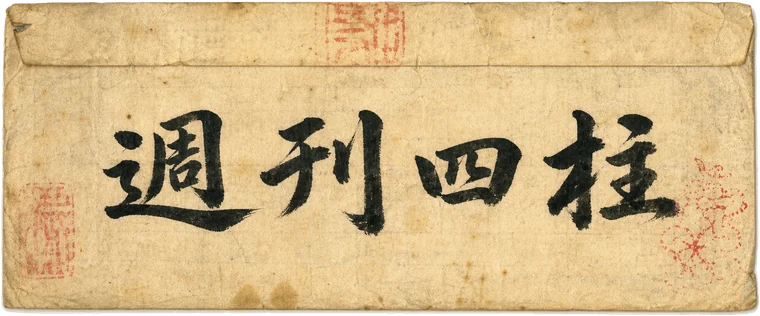 週刊四柱